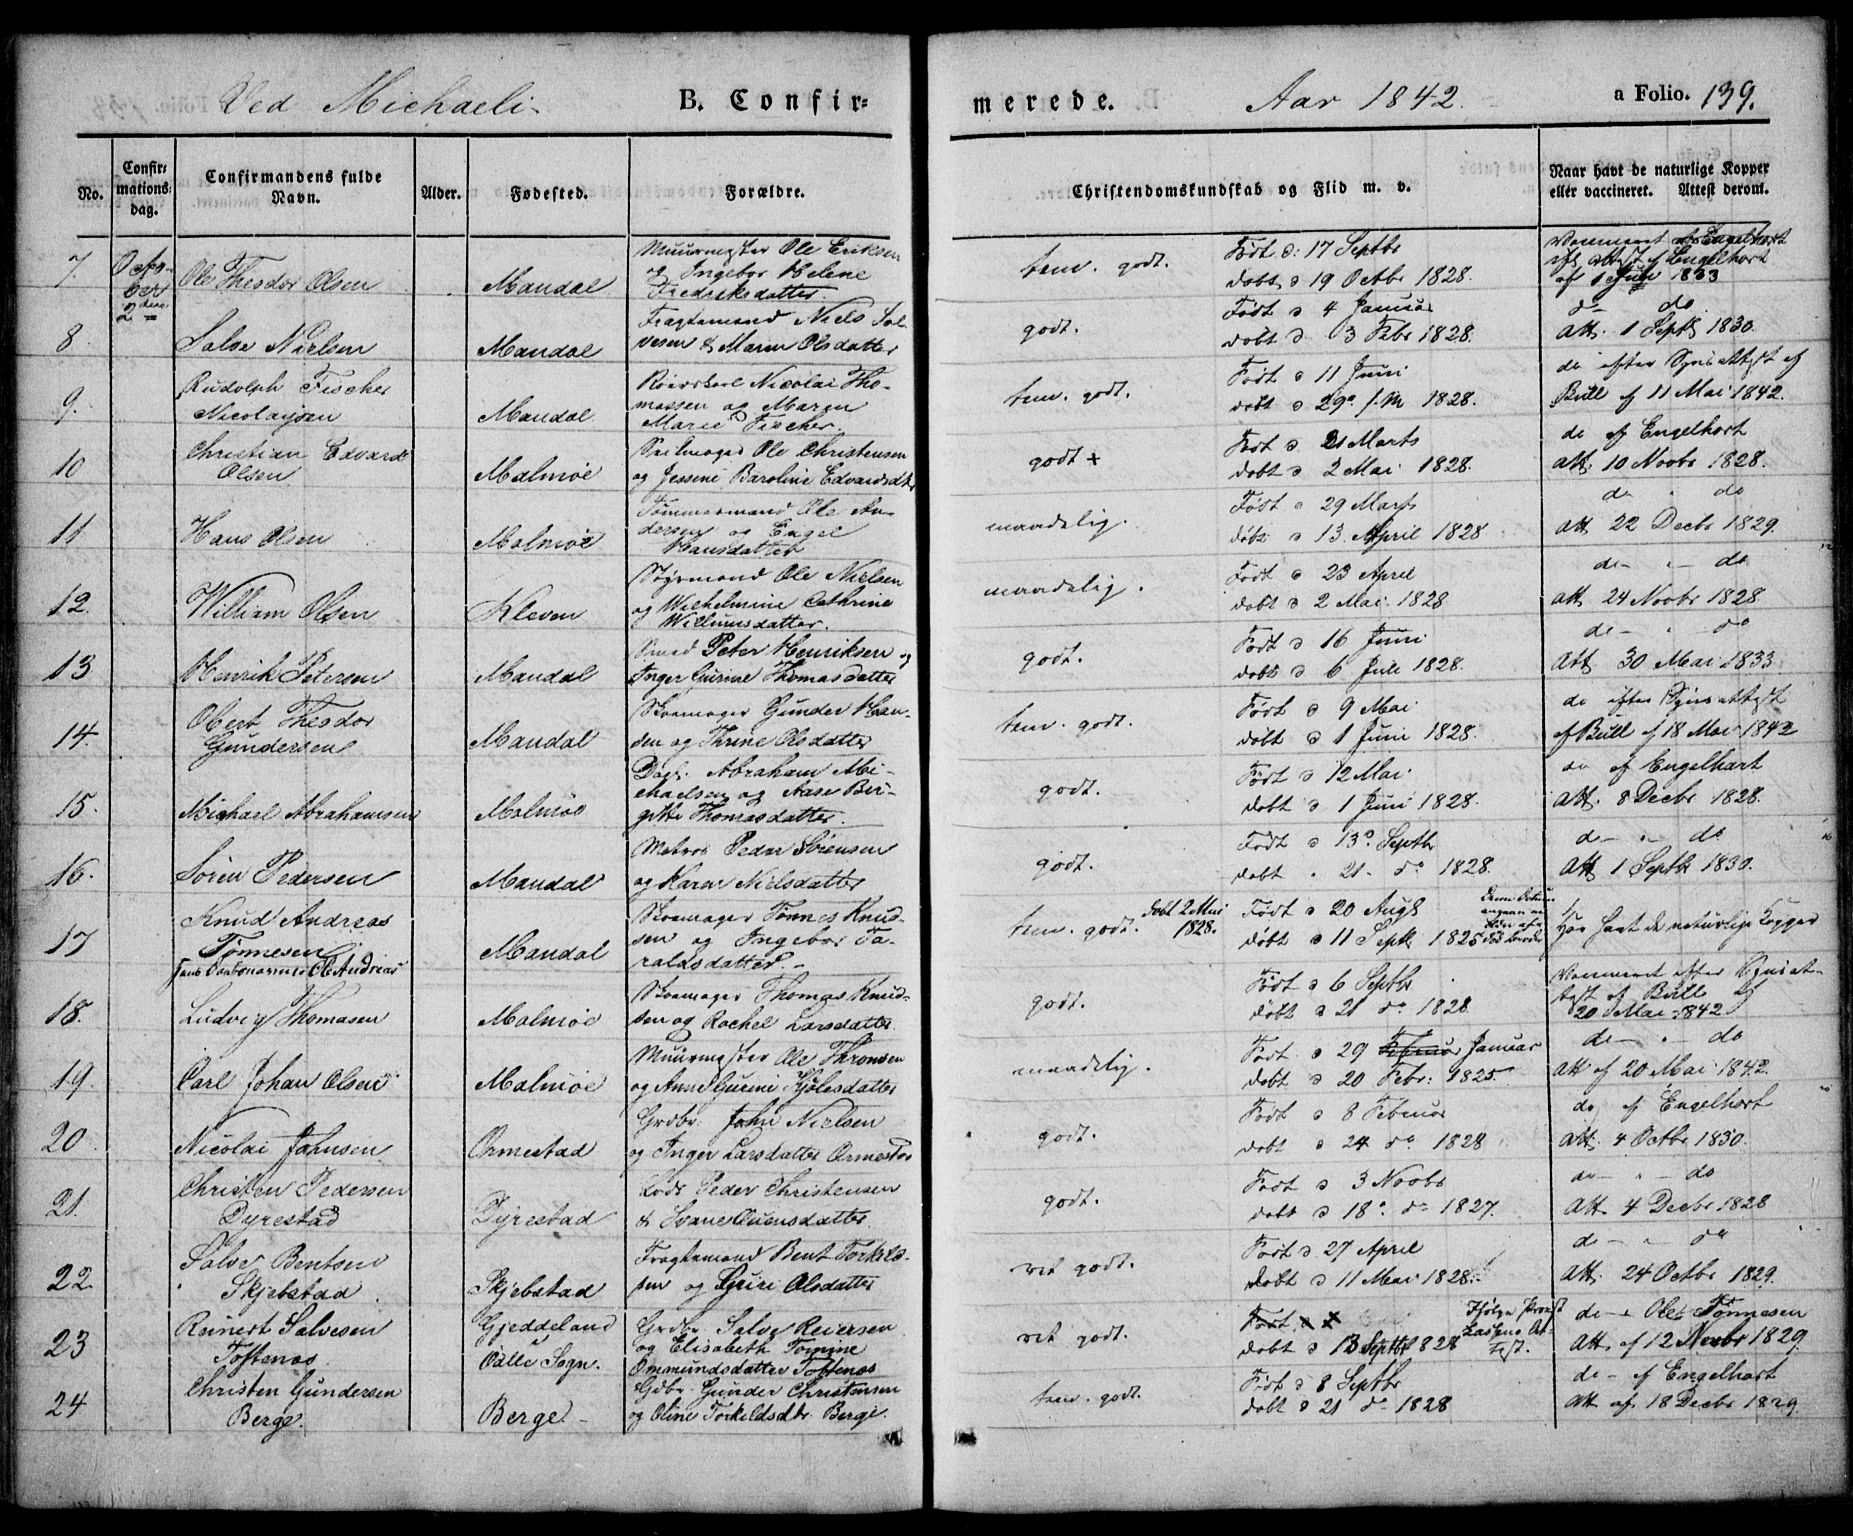 Ved Michaeli
B. Confir-
merede.
Aar 1842.
a Folio. 139.
No.
Confir-
mations-
dag.
Confirmandens fulde
Navn.
Alder.
Fødested.
Forældre.
Christendomskundskab og Flid m. v.
Naar havt de naturlige Kopper
eller vaccineret. Attest derom.
7.
Octo-
ber
2den
Ole Theodor Olsen
Mandal
Muurmester Ole Eriksen
og Ingebor Helene
Fredriksdatter.
tem. godt.
Født d: 17 Septbr
døbt d 19 Octbr 1828.
Vaccineret af Engelhart
ifl. Attest af Engelhart
af 1 Juli 1833
8
Salve Nielsen
Mandal
Fragtemand Niels Sal-
vesen & Maren Olsdatter
godt.
Født d 4 Januar
døbt d. 3 Febr 1828.
do do
Att. 1 Septb 1830.
9.
Rudolph Fischer
Nicolaysen
Mandal
Nicolai Tho-
massen og Maren
Marie Fischer.
tem. godt.
Født d 11 Juni
døbt d 29 s. M 1828.
do efter Synsattest af
Bull af 11 Mai 1842.
10
Christian Edvard
Olsen
Malmöe
Seilmager Ole Christensen
og Jessine Baroline Edvardsdtr
godt +
Født d 21 Marts
døbt d 2 Mai 1828.
do af Engelhart
Att. 10 Novbr 1828.
11
Hans Olsen
Malmöe
Tømmermand Ole An-
dersen og Engel
Hansdatter
maadelig.
Født d 29 Marts
døbt d 13 April 1828
do " do
Att 22 Decbr 1829.
12.
William Olsen
Kleven
Styrmand Ole Nielsen
og Wilhelmine Cathrine
Willumsdatter.
maadelig.
Født d 23 April
døbt d 2 Mai 1828
do - " - do
Att 24 Novbr 1828.
13
Henrik Petersen
Mandal
Smed Peter Henriksen og
Inger Gurine Thomasdatter
godt.
Født d 16 Juni
døbt d 6 Juli 1828.
do - " do
Att 30 Mai 1833
14.
Obert Theodor
Gundersen
Mandal
Skoemager Gunder Han-
sen og Thrine Olsdatter
tem. godt.
Født d 9 Mai
døbt d 1 Juni 1828.
do efter Synsattest
af Bull af 18 Mai 1842
15.
Michael Abrahamsen
Malmöe
Dagl. Abraham Mi-
chaelsen og Aase Bir-
gitte Thomasdatter.
godt.
Født d 12 Mai
døbt d 1 Juni 1828.
do af Engelhart
Att. 8 Decbr 1828.
16.
Søren Pedersen
Mandal
Matros Peder Sørensen
og Karen Nielsdatter
godt.
Født d 13 Septbr
døbt " 21 do 1828.
do - " - do
Att 1 Septb 1830.
17
Knud Andreas
Tønnesen
Ole Andreas
Mandal
Skoemager Tønnes Knud-
sen og Ingebor Ta-
raldsdatter. -
tem. godt.
døbt 2 Mai
1828.
Født d 20 Augs
døbt d 11 Septb 1825
Har havt de naturlige Kopper
18.
Ludvig Thomasen
Malmöe
Skoemager Thomas Knud-
sen og Rachel Larsdatter
godt.
Født d 6 Septbr
døbt d 21 do 1828
Vaccineret efter Synsat-
test af Bull af
20 Mai 1842
19.
Carl Johan Olsen
Malmöe
Muurmester Ole Thronsen
og Anne Gurine Kjølesdatter
maadelig.
Født d 29 Februar Januar
døbt d 20 Febr: 1825.
do - " - do
Att af 20 Mai 1842.
20
Nicolai Johnsen
Ormestad
Grdbr. John Nielsen
og Inger Larsdatter Ormestad
godt.
Født d 8 Februar
døbt d 24 do 1828
do af Engelhart
Att. 4 Octbr 1830.
21.
Christen Pedersen
Dyrestad
Dyrestad
Lods Peder Christensen
& Svane Auensdatter.
godt.
Født d 3 Novbr
døbt d 18 do 1827.
do - " - do
Att. 4 Decbr 1828
22
Salve Bentsen
Skjebstad
Skjebstad
Fragtemand Bent Torkels-
sen og Guri Olsdatter
ret godt.
Født d 27 April
døbt d 11 Mai 1828.
do - " - do
Att. 24 Octbr 1829.
23
Reinert Salvesen
Toftenæs
Gjeddeland
Valle Sogn.
Grdbr. Salve Reiersen
og Elisabeth Tomine
Ommundsdatter Toftenæs
ret godt.
Født x x
døbt d 13 Septbr 1828
Ifølge Provst
At-
test.
do - " Ole Tønnesen
Att af 12 Novbr 1829.
24
Christen Gundersen
Berge.
Berge -
Gdbr. Gunder Christensen
og Oline Torkildsdtr. Berge.
tem. godt.
Født d 8 Septbr
døbt d 21 do 1828
do - af Engelhart
Att af 18 Decbr 1829.